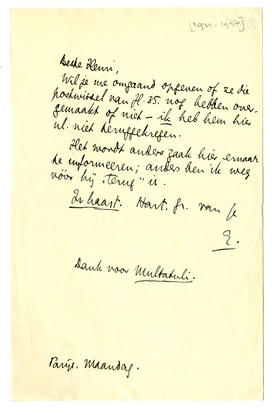 [1932-1936]
Beste Henri,
Wil je me omgaand opgeven of ze die
postwissel van fl. 85. nog hebben over-
gemaakt of niet – ik heb hem hier
nl. niet teruggekregen.
Het wordt anders zaak hier ernaar
te informeeren; anders ben ik weg
vóór hij „terug” is.
In haast. Hart. gr. van je
E.
Dank voor Multatuli.
Parijs. Maandag.